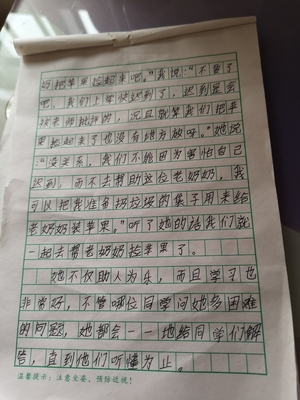 奶把苹果捡起来吧。"我说:"不管了
吧,我们上学快迟到了,迟到是会
被老师批评的,况且就算我们把苹
果捡起来了也没有地方放呀。"她说
"没关系,我们不能因为害怕自己
迟到,而不去帮助这位老奶奶,我
可以把我准备扔垃圾的袋子用来给
老奶奶装苹果。"听了她的话我们就
一起去帮老奶奶捡苹果了。
她不仅助人为乐,而且学习也
非常好,不管哪位同学问她多困难
的问题,她都会一一地给同学们解
答,直到他们听懂为止。
温馨提示:注意坐姿,预防近视!